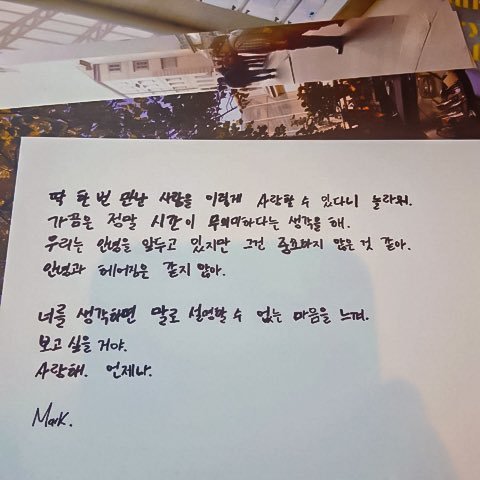 딱 한 번 만난 사람을 이렇게 사랑할 수 있다니 놀라워.
가끔은 정말 시간이 무의미하다는 생각을 해.
우리는 안녕을 앞두고 있지만 그건 중요하지 않은 것 같아.
안녕과 헤어짐은 같지 않아.
너를 생각하면 말로 설명할 수 없는 마음을 느껴.
보고 싶을 거야.
사랑해. 언제나.
Mark.